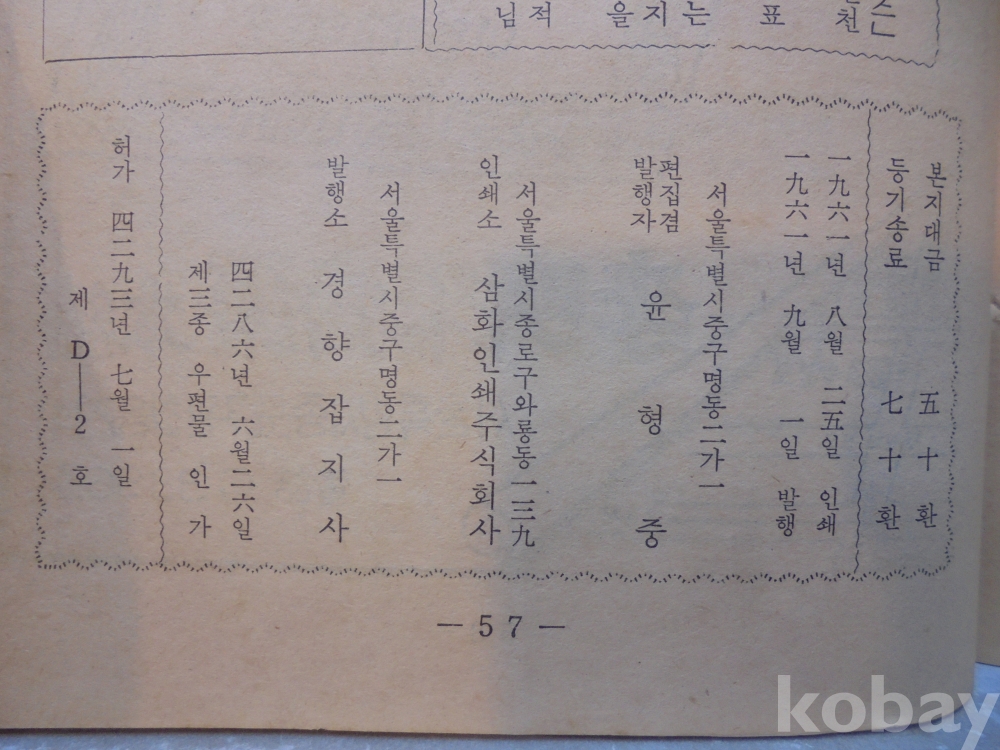 슨
천
표
는
지
을
적
님
본지대금 五十환
등기송료 七十환
一九六一년 八월 二五일 인쇄
一九六一년 九월 一일 발행
서울특별시중구명동二가一
편집겸
발행자 윤형중
서울특별시종로구와룡동一三九
인쇄소 삼화인쇄주식회사
서울특별시중구명동二가一
발행소 경향잡지사
四二八六년 六월二六일
제三종 우편물 인가
허가 四二九三년 七월 一일
제 D—2 호
— 57 —
kobay